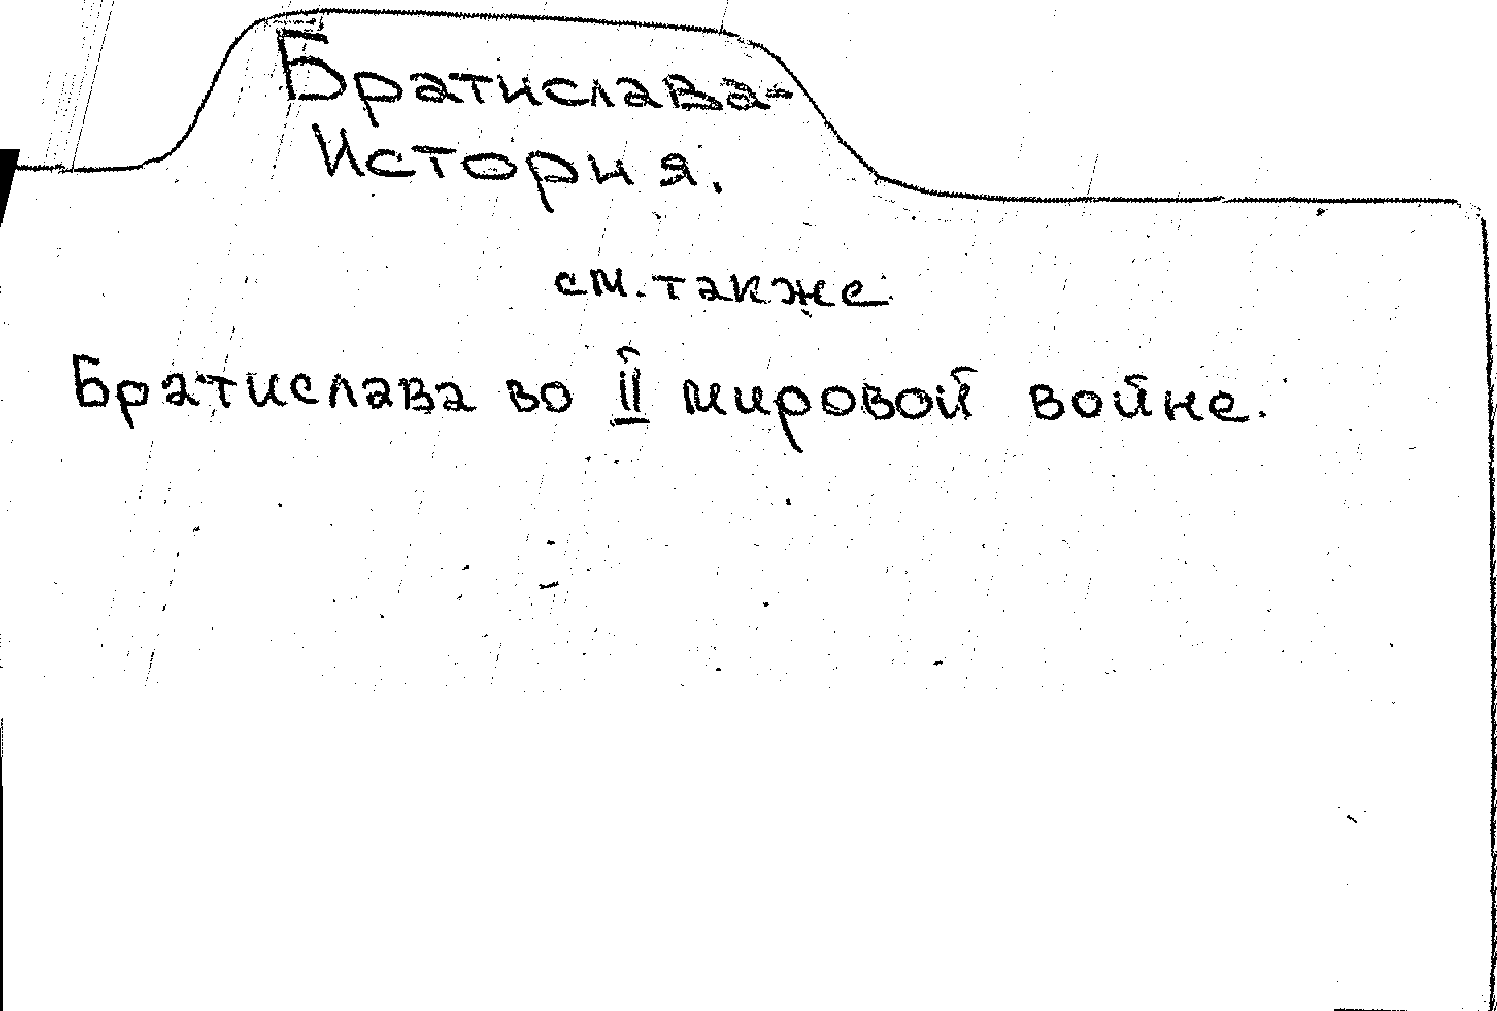 Братислава-
История.
см. также
Братислава во II мировой войне.